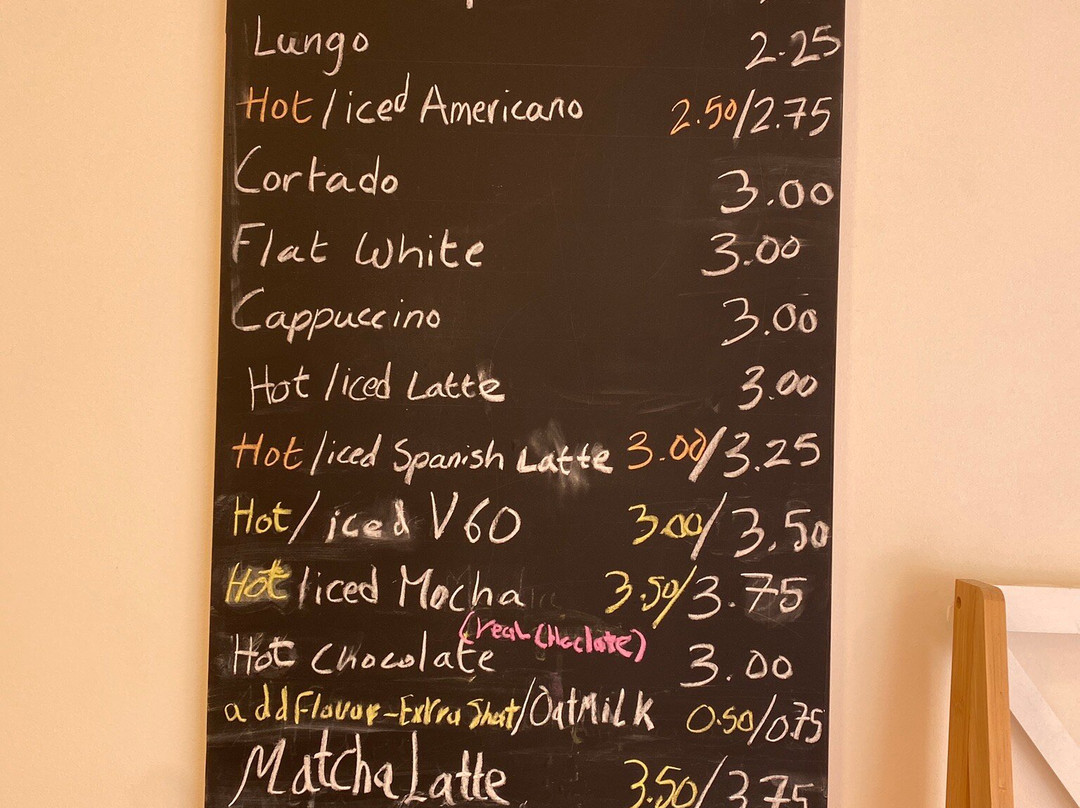 Lungo 2.25
Hot/iced Americano 2.50/2.75
Cortado 3.00
Flat White 3.00
Cappuccino 3.00
Hot/iced Latte 3.00
Hot/iced Spanish Latte 3.00/3.25
Hot/iced V60 3.00/3.50
Hot/iced Mocha 3.50/3.75
(real Choclate)
Hot chocolate 3.00
add Flavor-Extra Shot/Oat Milk 0.50/0.75
Matcha Latte 3.50/3.75